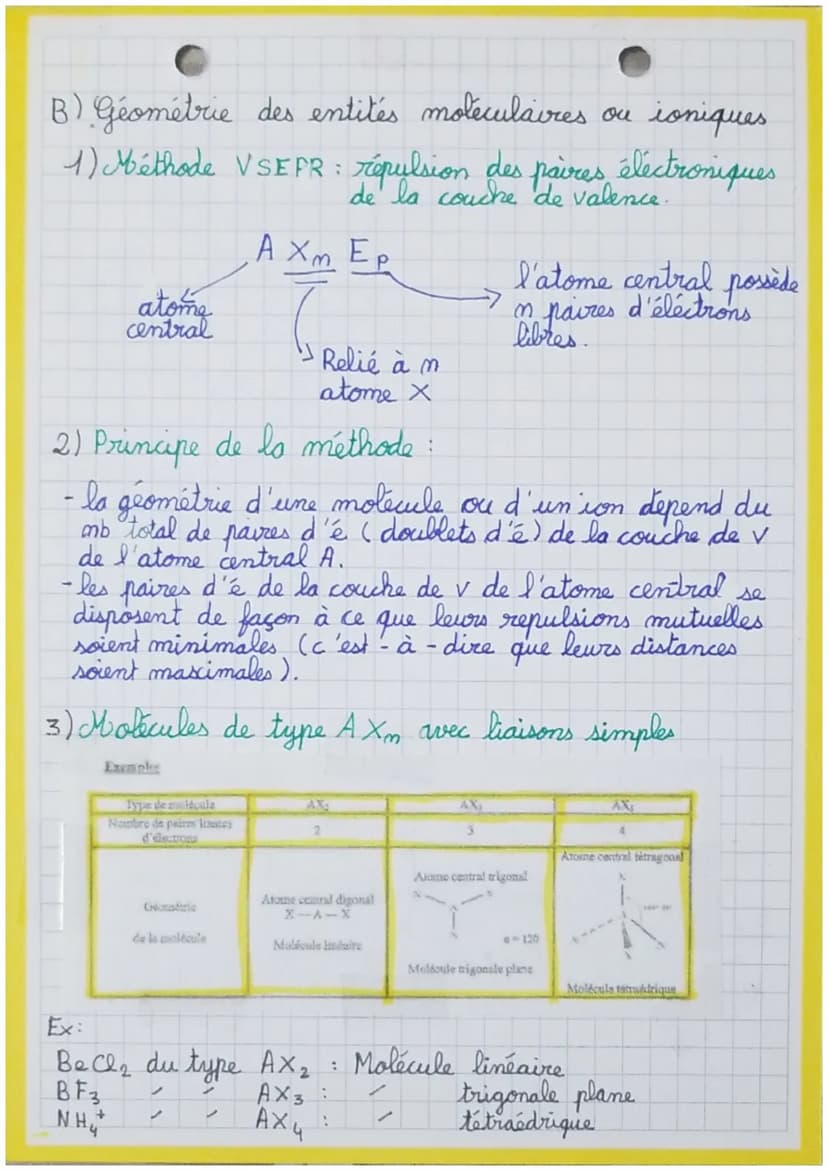 B) Géométrie des entités moléculaires ou ioniques
1) Méthode VSEPR : répulsion des paires électroniques
de la couche de valence.
A Xm Ep
atome
central
Relié à m
atome X
l'atome central possède
n paires d'éléctrons
libres.
2) Principe de la méthode :
- la géométrie d'une molécule ou d'un ion dépend du
nb total de paires d'é (doublets d'é) de la couche de v
de l'atome central A.
- les paires d'é de la couche de v de l'atome central se
disposent de façon à ce que leurs repulsions mutuelles
soient minimales (c'est-à-dire que leurs distances
soient maximales).
3) Molécules de type A Xm avec liaisons simples
Exemples
Type de molécule AX₂ AX₃ AX₄
Nombre de paires liantes
d'électrons 2 3 4
Géométrie
de la molécule
Atome central digonal
X — A — X
Molécule linéaire
Atome central trigonal
α = 120
Molécule trigonale plane
Atome central tétragonal
Molécule tétraédrique
Ex:
BeCl₂ du type AX₂ : Molécule linéaire
BF₃ " " AX₃ : " trigonale plane
NH₄⁺ " " AX₄ : " tétraédrique